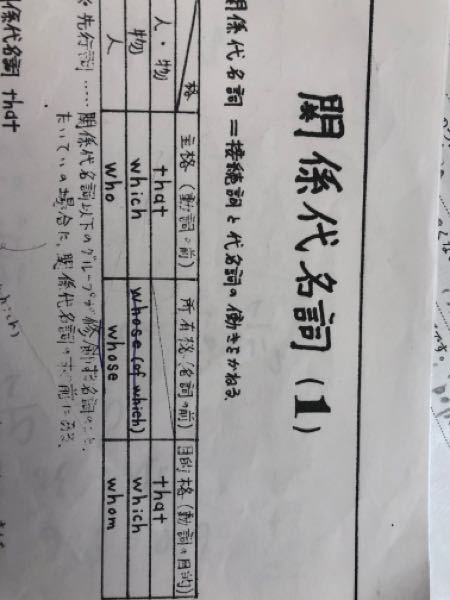 関係代名詞 (1)
関係代名詞 = 接続詞と代名詞の働きをかねる.
格 主格 (動詞の前) 所有格 (名詞の前) 目的格 (動詞の目的)
人・物 that that
物 which whose (of which) which
人 who whose whom
先行詞 …… 関係代名詞以下のグループが修飾する名詞のこと.
たいていの場合に, 関係代名詞のすぐ前にある.
係代名詞 that